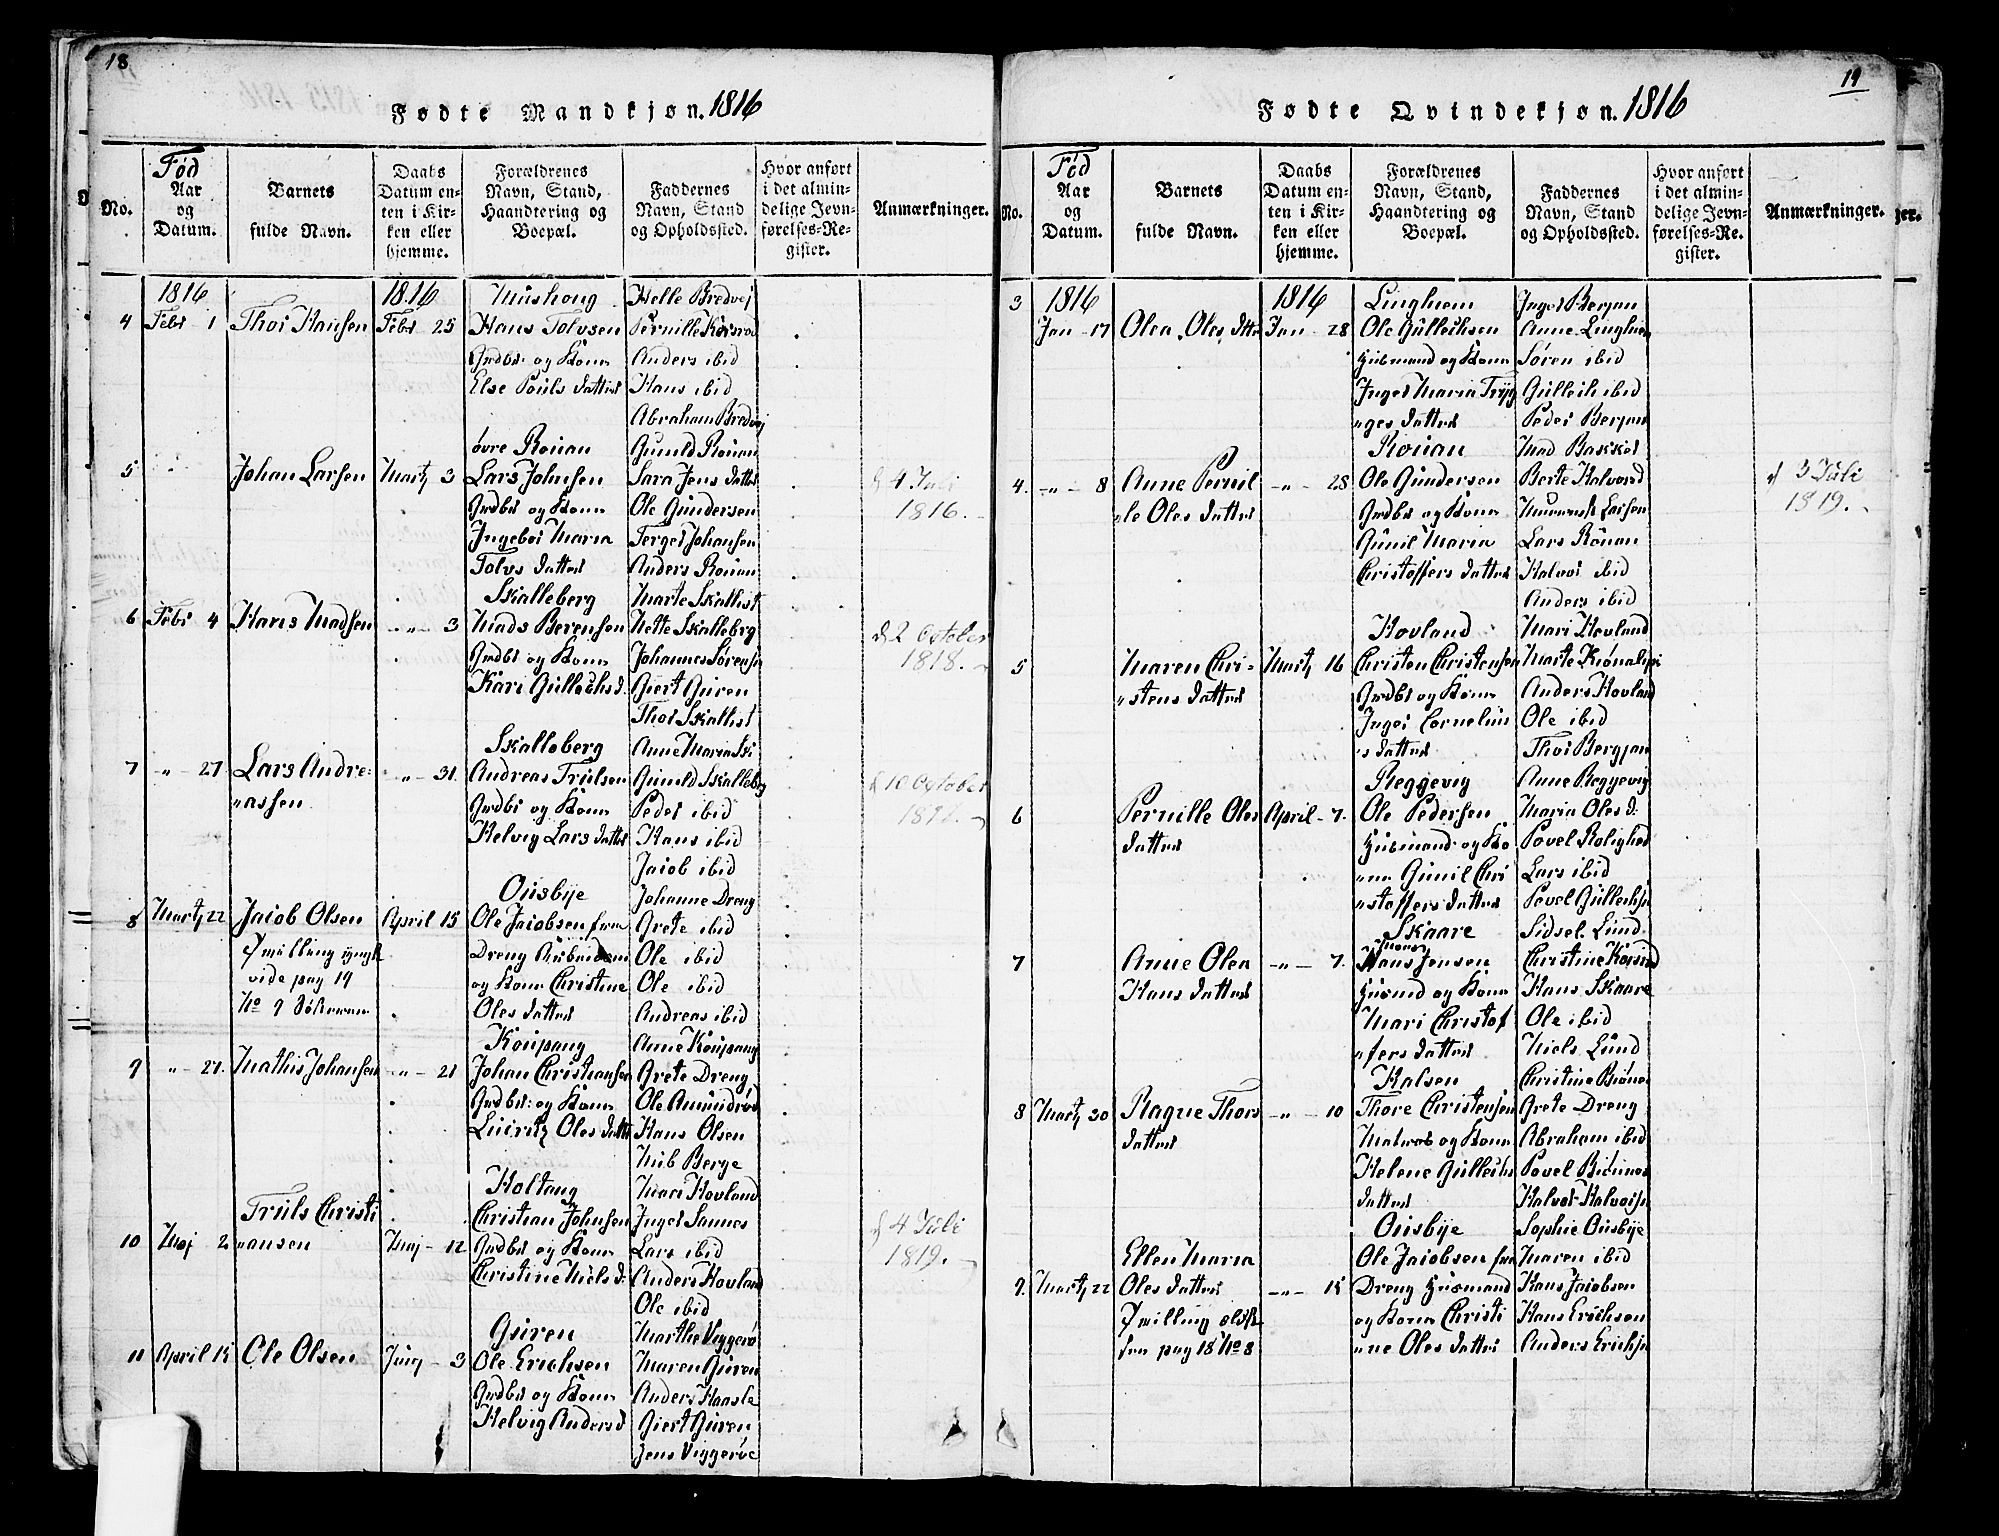 18
Fødte Mandkjøn. 1816
No.
Fød
Aar
og
Datum.
Barnets
fulde Navn.
Daabs
Datum en-
ten i Kir-
ken eller
hjemme.
Forældrenes
Navn, Stand,
Haandtering og
Boepæl.
Faddernes
Navn, Stand
og Opholdssted.
Hvor anført
i det almin-
delige Jevn-
førelses-Re-
gister.
Anmærkninger.
1816
4 Febr 1
Thor Hansen
1816
Febr 25
Hans Tolvsen
Grdbr og Kone
Else Pouls datter
Helle Bredvej
Pernille
Anders ibid
Hans ibid
Abraham Bredvej
5
Johan Larsen
Martz 3
øvre Rønan
Lars Johnsen
Grdbr og Kone
Ingebor Maria
Tolvs datter
Gunild Rønan
Sara Jens datter
Ole Gundersen
Terger Johansen
Anders Rønan
d 4 Juli
1816.
6 Febr 4
Hans Madsen
" 3
Skalleberg
Mads Berensen
Grdbr og Kone
Kari Gullechs d.
Marte Skallist
Nette Skalleberg
Johannes Sørensen
Giert Guren
Thor Skallist
d 2 October
1818.
7 " 27
Lars Andre-
"assen
" 31.
Skalleberg
Andreas Trulsen
Grdbr og Kone
Helvig Lars datter
Anne Maria Sk
Gunild Skalleberg
Peder ibid
Hans ibid
Jacob ibid
d 10 October
8 Martz 22
Jacob Olsen
Tvilling yngst
vide pag 19
No 9 Søsteren
April 15
Ousbye
Ole Jacobsen fra
Dreng
og Kone Christine
Oles datter
Johanne Dreng
Grete ibid
Ole ibid
Ole ibid
Andreas ibid
9 " 27.
Mathis Johansen
" 21
Koupang
Johan Christiansen
Grdbr og Kone
Oles datter
Anne Koupang
Grete Dreng
Ole Amundrød
Hans Olsen
Nub Berge
10 Maj 2
Truls Christi
"ansen
Maj 12
Holtang
Christian Johnsen
Grdbr og Kone
Christine Niels d.
Mari Hovland
Inger Sannes
Lars ibid
Anders Hovland
Ole ibid
d 4 Juli
1819.
11 April 15
Ole Olsen
Juny 3
Guren
Ole Erichsen
Grdbr og Kone
Helvig Anders d
Marthe Viggerø
Maren Guren
Anders Haasle
Giert Guren
Jens Viggerøe
19
Fødte Qvindekjøn. 1816
No.
Fød
Aar
og
Datum.
Barnets
fulde Navn.
Daabs
Datum en-
ten i Kir-
ken eller
hjemme.
Forældrenes
Navn, Stand,
Haandtering og
Boepæl.
Faddernes
Navn, Stand
og Opholdssted.
Hvor anført
i det almin-
delige Jevn-
førelses-Re-
gister.
Anmærkninger.
3 1816
Jan 17
Olea Oles dttr
1816
Jan 28
Linghem
Ole Gullechsen
Huusmand og Kone
Inger Maria Tryg
"ges datter
Inger Berjan
Anne Linghem
Søren ibid
Gullech ibid
Peder Berjan
4. " 8
Anne Pernil
"le Oles datter
" 28
Rønan
Ole Gundersen
Grdbr og Kone
Gunil Maria
Christoffers datter
Mad Bakker
Berte Halvord
Larsen
Lars Rønan
Halvor ibid
Anders ibid
d 3 Juli
1819.
5
Maren Chri-
"stens datter
Martz 16
Hovland
Christen Christensen
Grdbr og Kone
Inger Cornelius
"s datter
Mari Hovland
Marte
Anders Hovland
Ole ibid
Thor Bergjan
6
Pernille Oles
datter
April 7.
Reggevig
Ole Pedersen
Huusmand og Ko
"ne Gunil Chri
"stoffers datter
Anne Reggevig
Maria Oles d.
Povel Rolighed
Lars ibid
Povel Gullechsen
7
Anne Olea
Hans datter
" 7.
Skaare
Hans Jensen
Huusmd og Kone
Mari Christof
"fers datter
Sidsel Lund
Christine
Hans Skaare
Ole ibid
Niels Lund
8 Martz 30
Ragne Thors
datter
" 10
Halsen
Thore Christensen
Matros og Kone
Helene Gullechs
datter
Christine
Grete Dreng
Abraham ibid
Povel
Halvor Halvorsen
9. Martz 22
Ellen Maria
Oles datter
Tvilling eldst
see pag 18 No 8
" 15
Ousbye
Ole Jacobsen fra
Dreng Huusmand
og Kone Christi
"ne Oles datter
Sophie Ousbye
Maren ibid
Hans Jacobsen
Hans Erichsen
Anders Erichsen